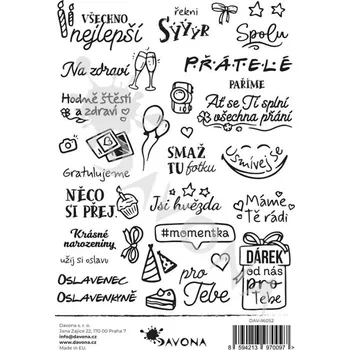 VŠECHNO
nejlepší
řekni
SÝÝÝR
Spolu
Na zdraví
PŘÁTELÉ
PAŘÍME
Hodně štěstí
a zdraví
Ať se Ti splní
všechna přání
SMAŽ
TU fotku
Usmívej se
Gratulujeme
NĚCO
SI PŘEJ
Jsi hvězda
Máme
Tě rádi
#momentka
Krásné
narozeniny
užij si oslavu
DÁREK
od nás
pro
Tebe
pro
Tebe
OSLAVENEC
OSLAVENKYNĚ
Davona s. r. o.
Jana Zajíce 22, 170 00 Praha 7
info@davona.cz
www.davona.cz
Made in EU.
DAVONA
DAV-R6052
8 594213 970097 >